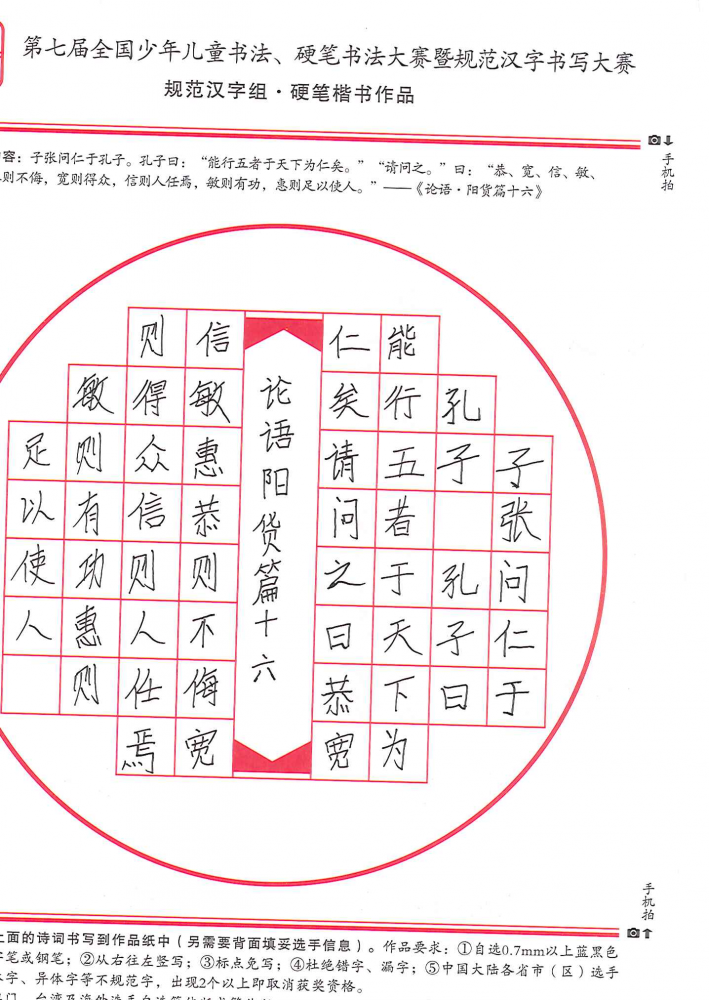 第七届全国少年儿童书法、硬笔书法大赛暨规范汉字书写大赛
规范汉字组·硬笔楷书作品
手机拍
容：子张问仁于孔子。孔子曰：“能行五者于天下为仁矣。”“请问之。”曰：“恭、宽、信、敏、
则不侮，宽则得众，信则人任焉，敏则有功，惠则足以使人。”——《论语·阳货篇十六》
子张问仁于
孔子 孔子曰
能行五者于天下为
仁矣请问之曰恭宽
论语阳货篇十六
信敏惠恭则不侮宽
则得众信则人任焉
敏则有功惠则
足以使人
手机拍
上面的诗词书写到作品纸中（另需要背面填妥选手信息）。作品要求：①自选0.7mm以上蓝黑色
字笔或钢笔；②从右往左竖写；③标点免写；④杜绝错字、漏字；⑤中国大陆各省市（区）选手
字、异体字等不规范字，出现2个以上即取消获奖资格。